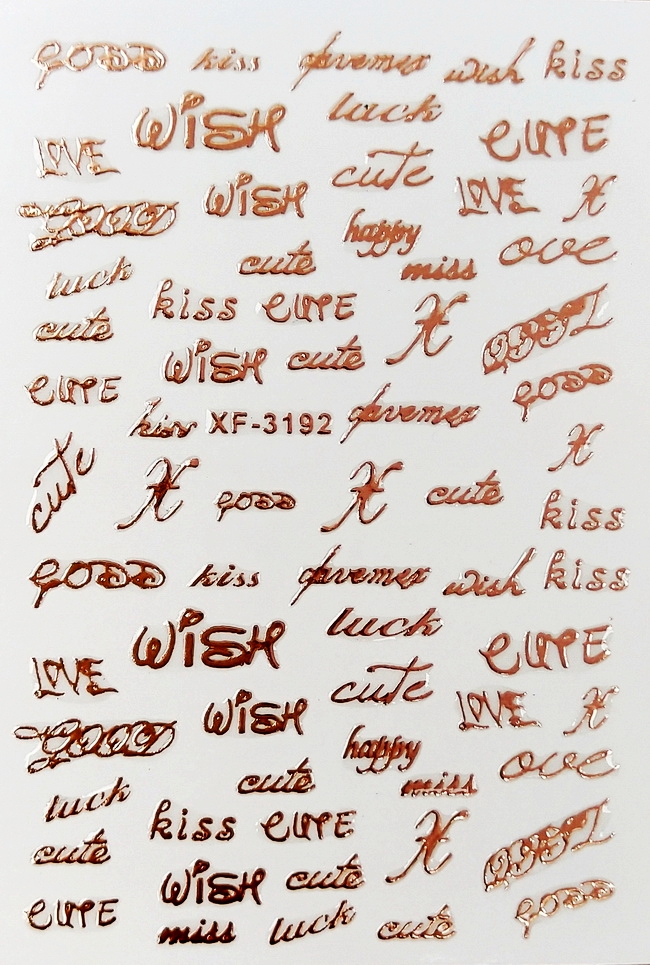 GOOD kiss wish kiss
WISH luck CUTE
LOVE cute
GOOD WISH LOVE X
happy ove
luck cute miss
kiss CUTE X
cute WISH cute
CUTE GOOD
kiss XF-3192
cute X GOOD X cute X
kiss
GOOD kiss wish kiss
WISH luck CUTE
LOVE cute
GOOD WISH LOVE X
happy ove
luck cute miss
kiss CUTE X
cute WISH cute
CUTE GOOD
miss luck cute